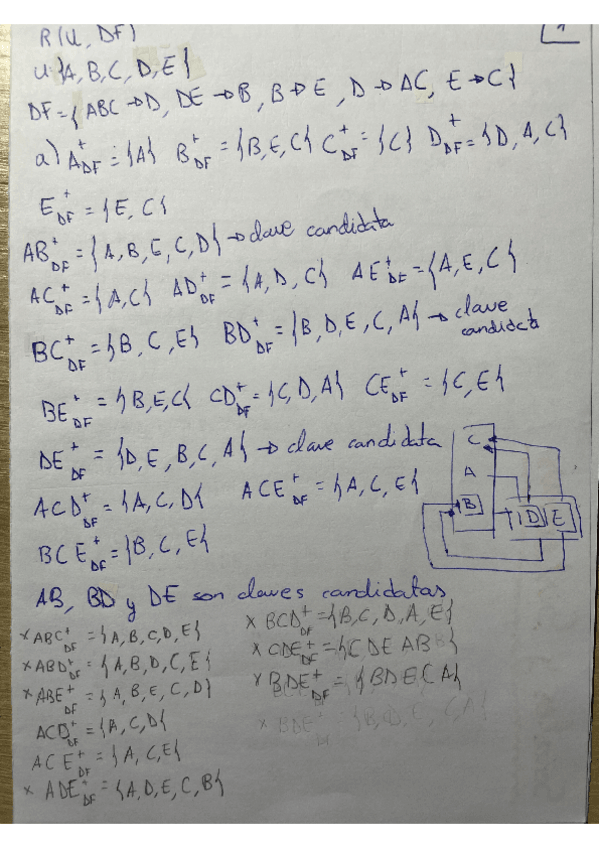 R(U, DF)
1
U{A, B, C, D, E}
DF={ABC→D, DE→B, B→E, D→AC, E→C}
a) A⁺DF = {A} B⁺DF = {B, E, C} C⁺DF = {C} D⁺DF = {D, A, C}
E⁺DF = {E, C}
AB⁺DF = {A, B, E, C, D} → clave candidata
AC⁺DF = {A, C} AD⁺DF = {A, D, C} AE⁺DF = {A, E, C}
BC⁺DF = {B, C, E} BD⁺DF = {B, D, E, C, A} → clave candidata
BE⁺DF = {B, E, C} CD⁺DF = {C, D, A} CE⁺DF = {C, E}
DE⁺DF = {D, E, B, C, A} → clave candidata
ACD⁺DF = {A, C, D} ACE⁺DF = {A, C, E}
BCE⁺DF = {B, C, E}
C
A
B D E
AB, BD y DE son claves candidatas
× ABC⁺DF = {A, B, C, D, E}
× ABD⁺DF = {A, B, D, C, E}
× ABE⁺DF = {A, B, E, C, D}
ACD⁺DF = {A, C, D}
ACE⁺DF = {A, C, E}
× ADE⁺DF = {A, D, E, C, B}
× BCD⁺DF = {B, C, D, A, E}
× CDE⁺DF = {C D E A B}
× BDE⁺DF = {B D E C A}
× BDE⁺DF